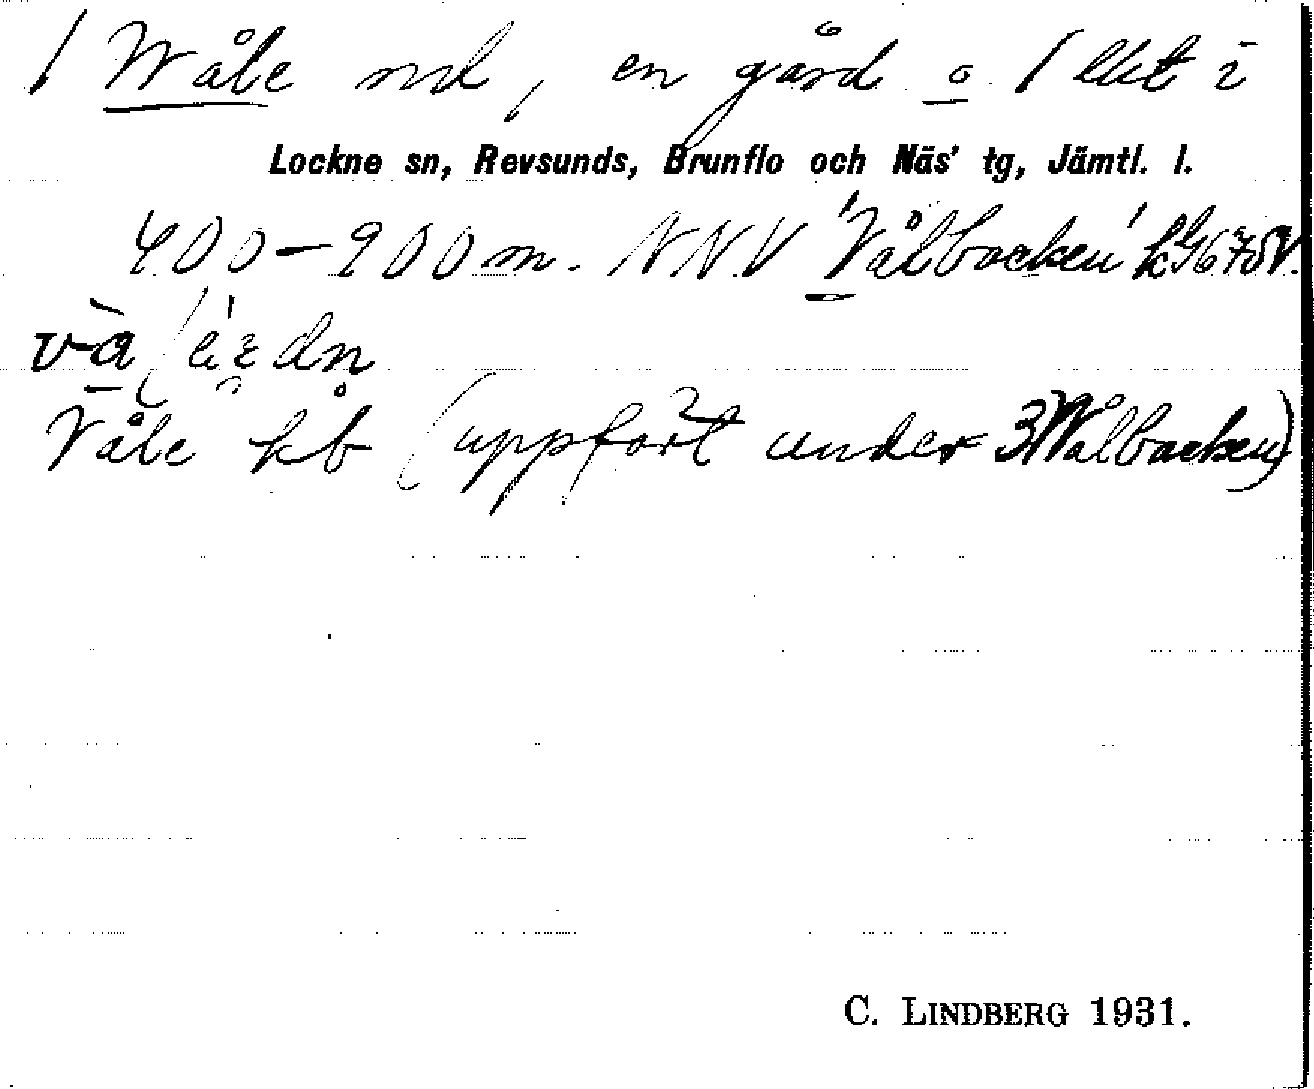 1 Wåle nd, en gård o. 1 lht i
Lockne sn, Revsunds, Brunflo och Näs' tg, Jämtl. l.
400–900 m. NNV 'Vålbacken'
Våle kb (uppfört under 3 Wålbacken)
C. LINDBERG 1931.